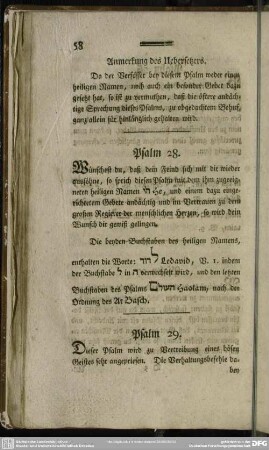 58
Anmerkung des Uebersetzers.
Da der Verfasser bey diesem Psalm weder einen
heiligen Namen, noch auch ein besonder Gebet dazu
gesetzt hat, so ist zu vermuthen, daß die öftere andäch-
tige Sprechung dieses Psalms, zu obgedachtem Behuf,
ganz allein für hinlänglich gehalten wird.
Psalm 28.
Wünschest du, daß dein Feind sich mit dir wieder
aussöhne, so sprich diesen Psalm mit dem ihm zugeeig-
neten heiligen Namen הי He, und einem dazu einge-
richtetem Gebete andächtig und im Vertrauen zu dem
großen Regierer der menschlichen Herzen, so wird dein
Wunsch dir gewiß gelingen.
Die beyden Buchstaben des heiligen Namens,
enthalten die Worte: לדוד Ledavid, V. 1. indem
der Buchstabe ל in ה verwechselt wird, und den letzten
Buchstaben des Psalms העולם Haolam, nach der
Ordnung des At Basch.
Psalm 29.
Dieser Psalm wird zu Vertreibung eines bösen
Geistes sehr angepriesen. Die Verhaltungsbefehle da-
bey